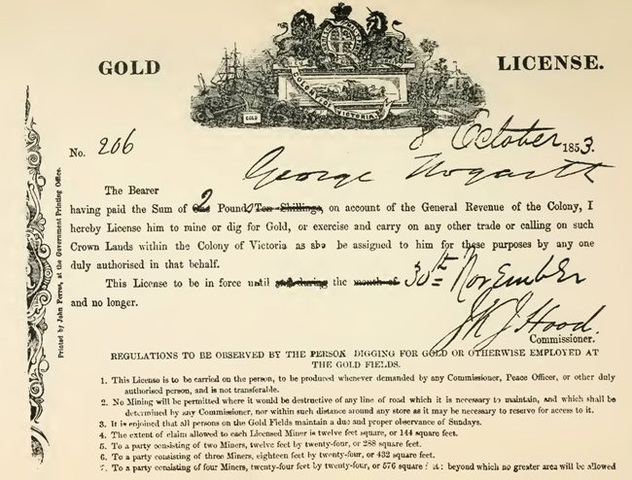 GOLD LICENSE.
COLONY OF VICTORIA
GOLD
No. 206 8 October 1853.
George Hogarth
The Bearer
having paid the Sum of One 2 Pounds Ten Shillings, on account of the General Revenue of the Colony, I
hereby License him to mine or dig for Gold, or exercise and carry on any other trade or calling on such
Crown Lands within the Colony of Victoria as shall be assigned to him for these purposes by any one
duly authorised in that behalf.
This License to be in force until and during the month of 30th November
and no longer.
Hood
Commissioner.
Printed by John Ferres, at the Government Printing Office.
REGULATIONS TO BE OBSERVED BY THE PERSON DIGGING FOR GOLD OR OTHERWISE EMPLOYED AT
THE GOLD FIELDS.
1. This License is to be carried on the person, to be produced whenever demanded by any Commissioner, Peace Officer, or other duly
authorised person, and is not transferable.
2. No Mining will be permitted where it would be destructive of any line of road which it is necessary to maintain, and which shall be
determined by any Commissioner, nor within such distance around any store as it may be necessary to reserve for access to it.
3. It is enjoined that all persons on the Gold Fields maintain a due and proper observance of Sundays.
4. The extent of claim allowed to each Licensed Miner is twelve feet square, or 144 square feet.
5. To a party consisting of two Miners, twelve feet by twenty-four, or 288 square feet.
6. To a party consisting of three Miners, eighteen feet by twenty-four, or 432 square feet.
7. To a party consisting of four Miners, twenty-four feet by twenty-four, or 576 square feet: beyond which no greater area will be allowed